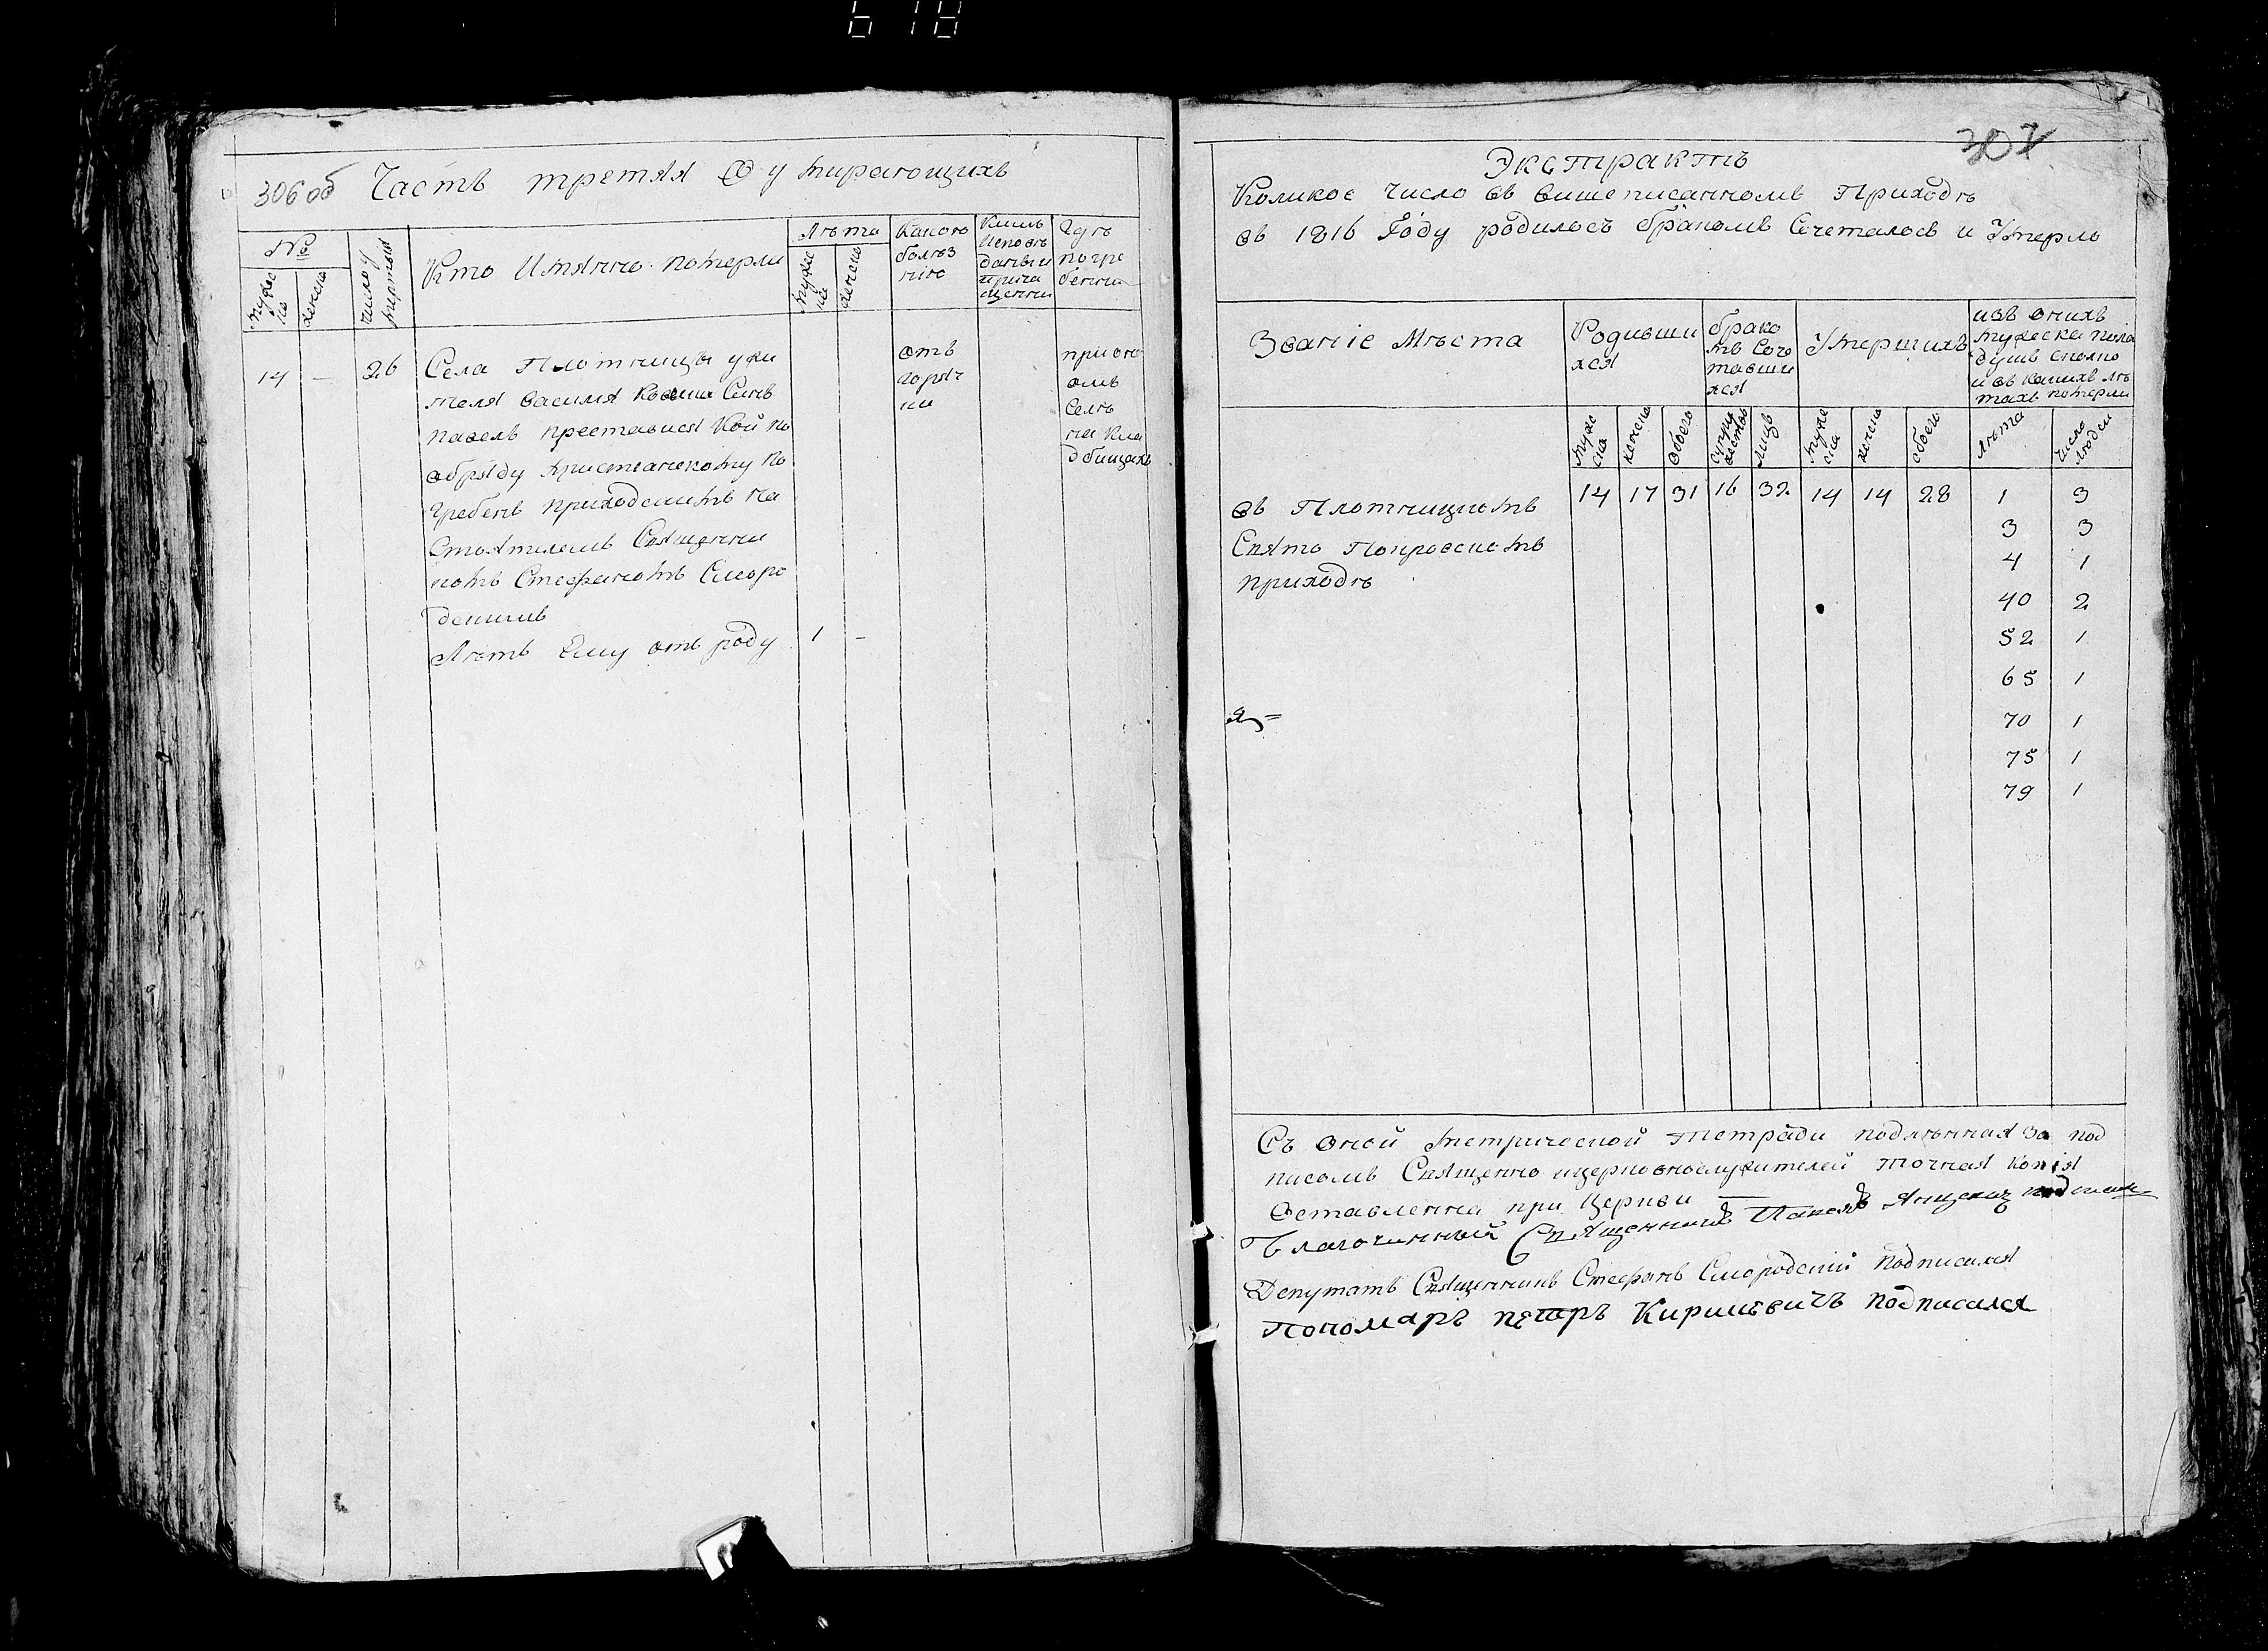 618
306 об Часть третяя О умирающихъ
№
Мужес ка
женска
число умертвія
Кто Имянно померли
Лѣта
Мужес ка
женска
Какою болѣз нію
Кѣмъ Исповѣ даны и прича щенни
Гдѣ погре бенни
14 — 26
Села Плотницы ужи
теля Василя Синъ
павелъ преставися Кой по
обряду христианскому по
гребенъ приходскимъ На
Стоятелемъ Священни
комъ Стефаномъ Сморо
денимъ
Лѣтъ Ему отъ роду 1 —
отъ
горяч
ки
при оно
омъ
Селѣ
на кла
дбищахъ
307
Экстрактъ
Коликое число въ вишеписанномъ Приходѣ
въ 1816 Году родилось бракомъ Сочеталось и Умерло
Званіе Мѣста
Родивши хся
брако мъ Соче тавши хся
Умершихъ
изъ онихъ
мужеска пола
душъ сколко
и въ какихъ лѣ
тахъ померли
Муже ска
женска
обоего
супружествъ
лицъ
муже ска
женска
обоего
лѣта
число людей
въ Плотницкомъ
Свято Покровскомъ
приходѣ
14 17 31 16 32 14 14 28 1 3
3 3
4 1
40 2
52 1
65 1
70 1
75 1
79 1
Съ оной метрической тетради подлѣнная за под
писомъ Священно ицерковнослужителей точная копія
Оставленна при Церкви
Благочинный Священникъ Павелъ подписал
Депутатъ Священникъ Стефанъ Смородскій подписался
Пономаръ петръ Кирилевичъ подписался